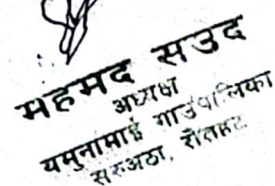 महमद सउद
अध्यक्ष
यमुनामाई गाउँपालिका
सरुअठा, रौतहट